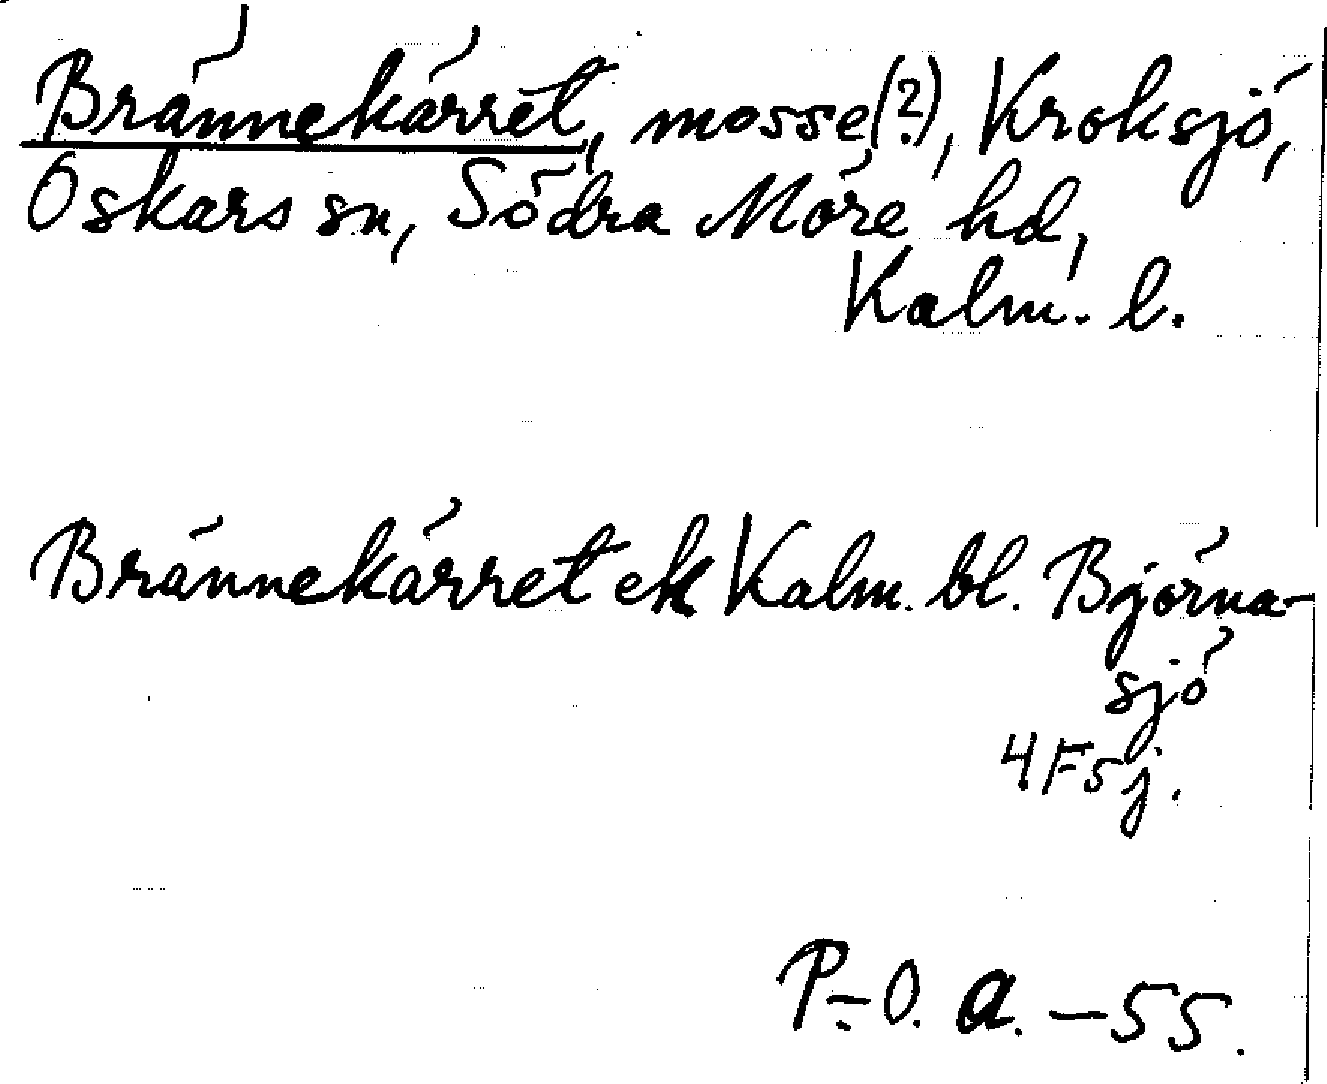 Brännekärret, mosse(?), Kroksjö,
Oskars sn, Södra Möre hd,
Kalm. l.
Brännekärret ek Kalm. bl. Björna-
sjö
4Fsj.
P-O. a. -55.